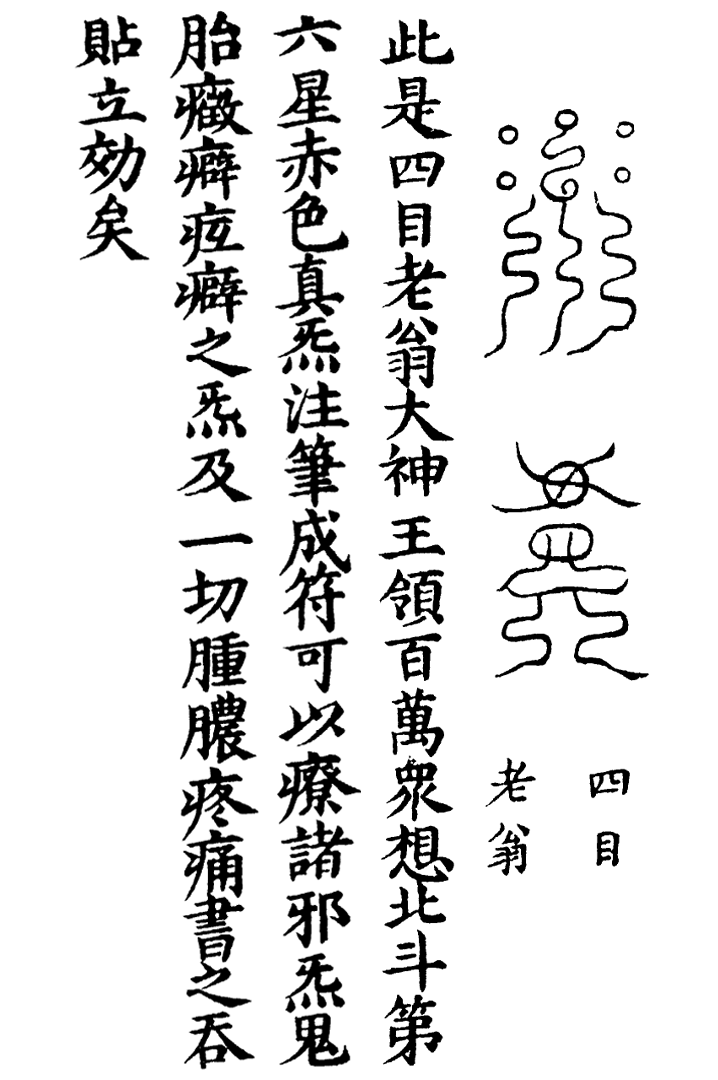 四目
老翁
此是四目老翁大神王領百萬衆想北斗第
六星赤色真炁注筆成符可以療諸邪炁鬼
胎癥癖痃癖之炁及一切腫膿疼痛書之吞
貼立効矣